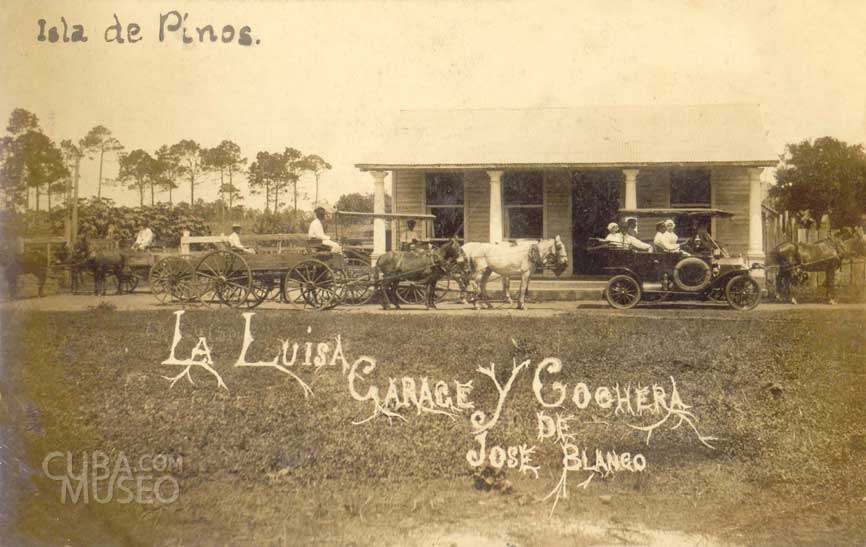 Isla de Pinos.
La Luisa, Garage y Cochera
de
José Blanco
CUBA.COM
MUSEO